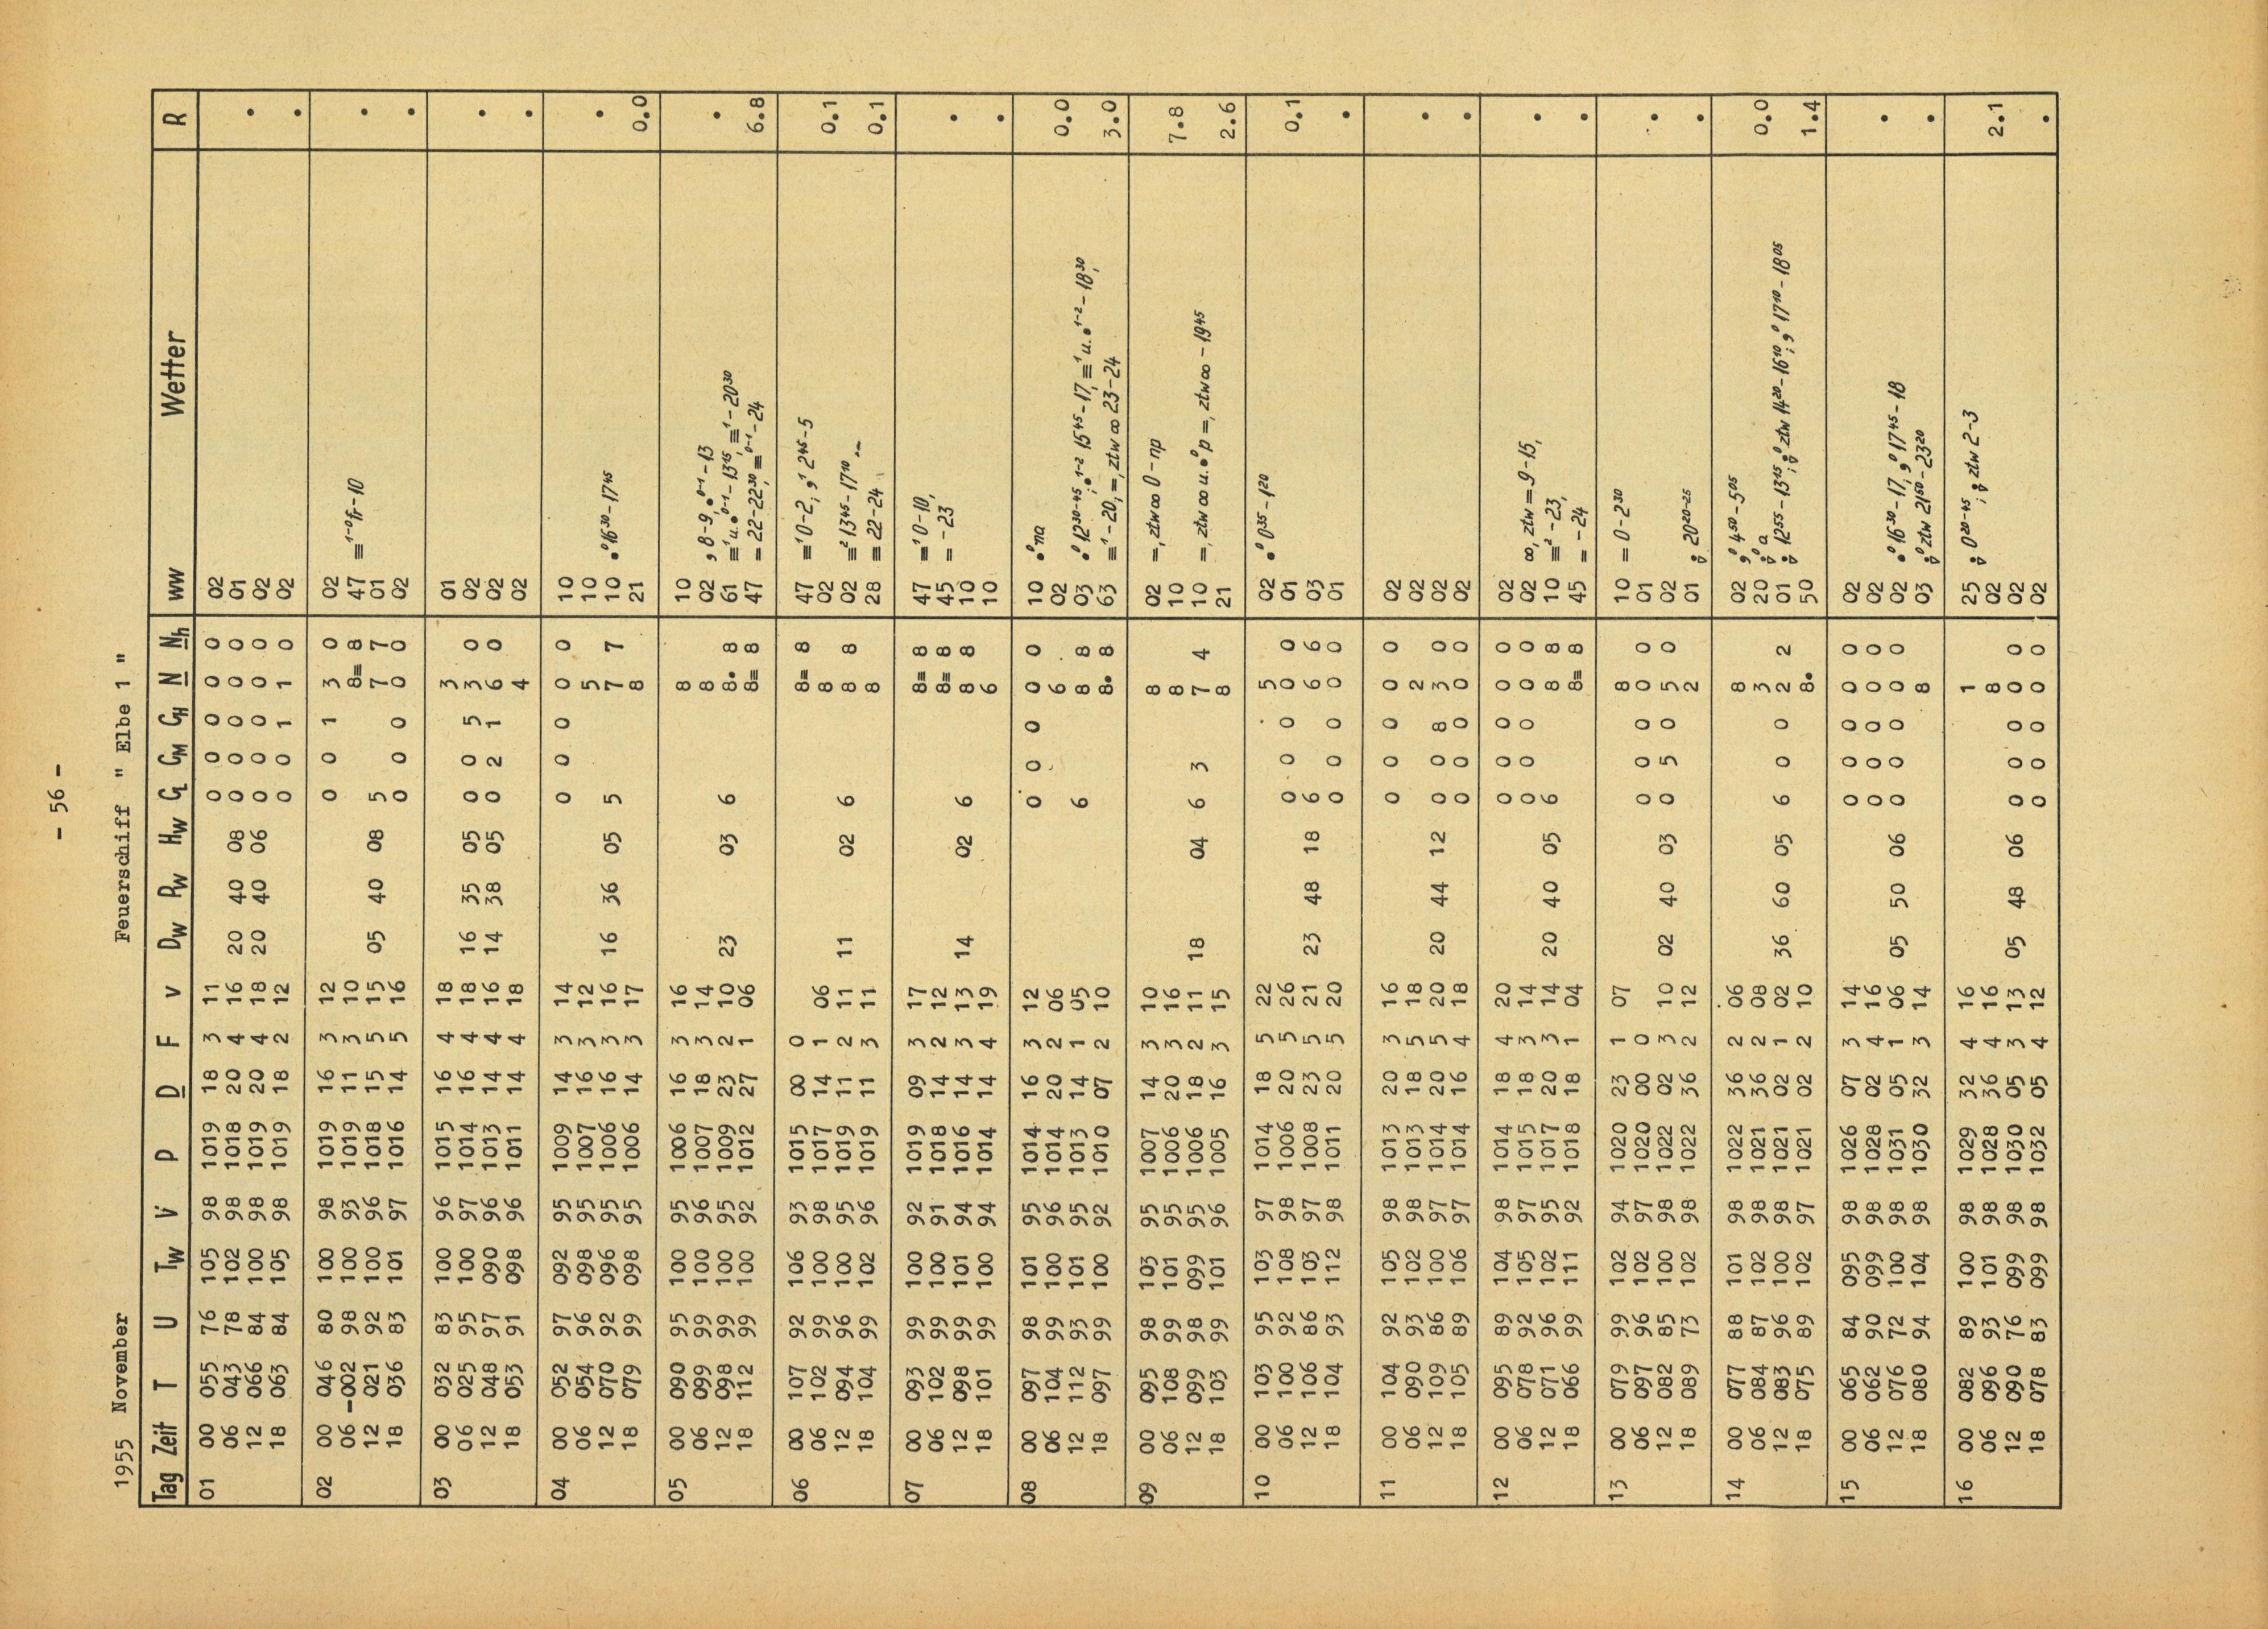 - 56 -
1955 November Feuerschiff " Elbe 1 "
Tag Zeit T U Tw V P D F v Dw Pw Hw CL CM CH N Nh ww Wetter R
01 00 055 76 105 98 1019 18 3 11 0 0 0 0 0 02
06 043 78 102 98 1018 20 4 16 20 40 08 0 0 0 0 0 01 .
12 066 84 100 98 1019 20 4 18 20 40 06 0 0 0 0 0 02
18 063 84 105 98 1019 18 2 12 0 0 1 1 0 02 .
02 00 046 80 100 98 1019 16 3 12 0 0 1 3 0 02
06 -002 98 100 93 1019 11 3 10 8≡ 8 47 ≡¹⁻⁰fr-10 .
12 021 92 100 96 1018 15 5 15 05 40 08 5 7 7 01
18 036 83 101 97 1016 14 5 16 0 0 0 0 0 02 .
03 00 032 83 100 96 1015 16 4 18 3 01
06 025 95 100 97 1014 16 4 18 16 35 05 0 0 5 3 0 02 .
12 048 97 090 96 1013 14 4 16 14 38 05 0 2 1 6 0 02
18 053 91 098 96 1011 14 4 18 4 02 .
04 00 052 97 092 95 1009 14 3 14 0 0 0 0 0 10
06 054 96 098 95 1007 16 3 12 5 10 .
12 070 92 096 95 1006 16 3 16 16 36 05 5 7 7 10 •⁰16³⁰-17⁴⁵
18 079 99 098 95 1006 14 3 17 8 21 0.0
05 00 090 95 100 95 1006 16 3 16 8 10
06 099 99 100 96 1007 18 3 14 8 02 , 8-9,•⁰⁻¹-13 .
12 098 99 100 95 1009 23 2 10 23 03 6 8• 8 61 ≡¹u.•⁰⁻¹-13⁴⁵,≡¹-20³⁰
18 112 99 100 92 1012 27 1 06 8≡ 8 47 =22-22³⁰,≡⁰⁻¹-24 6.8
06 00 107 92 106 93 1015 00 0 8≡ 8 47 ≡¹0-2, ,¹2⁴⁵-5
06 102 99 100 98 1017 14 1 06 8 02 0.1
12 094 96 100 95 1019 11 2 11 11 02 6 8 8 02 ≡²13⁴⁵-17¹⁰
18 104 99 102 96 1019 11 3 11 8 28 ≡22-24 0.1
07 00 093 99 100 92 1019 09 3 17 8≡ 8 47 ≡¹0-10,
06 102 99 100 91 1018 14 2 12 8≡ 8 45 =-23 .
12 098 99 101 94 1016 14 3 13 14 02 6 8 8 10
18 101 99 100 94 1014 14 4 19 6 10 .
08 00 097 98 101 95 1014 16 3 12 0 0 0 0 0 10 •⁰na
06 104 99 100 96 1014 20 2 06 6 02 0.0
12 112 93 101 95 1013 14 1 05 6 8 8 03 •⁰12³⁰⁻⁴⁵,•¹⁻²15⁴⁵-17,≡¹u.•¹⁻²-18³⁰,
18 097 99 100 92 1010 07 2 10 8• 8 63 ≡¹-20,=,ztw∞23-24 3.0
09 00 095 98 103 95 1007 14 3 10 8 02 =,ztw∞0-np
06 108 99 101 95 1006 20 3 16 8 10 7.8
12 099 98 099 95 1006 18 2 11 18 04 6 3 7 4 10 =,ztw∞u.•⁰p=,ztw∞-19⁴⁵
18 103 99 101 96 1005 16 3 15 8 21 2.6
10 00 103 95 103 97 1014 18 5 22 5 02 •⁰0³⁵-1²⁰
06 100 92 108 98 1006 20 5 26 0 0 0 0 0 01 0.1
12 106 86 103 97 1008 23 5 21 23 48 18 6 6 6 03
18 104 93 112 98 1011 20 5 20 0 0 0 0 0 01 .
11 00 104 92 105 98 1013 20 3 16 0 0 0 0 0 02
06 090 93 102 98 1013 18 5 18 2 02 .
12 109 86 100 97 1014 20 5 20 20 44 12 0 0 8 3 0 02
18 105 89 106 97 1014 16 4 18 0 0 0 0 0 02 .
12 00 095 89 104 98 1014 18 4 20 0 0 0 0 0 02
06 078 92 105 97 1015 18 3 14 0 0 0 0 0 02 ∞,ztw=9-15, .
12 071 96 102 95 1017 20 3 14 20 40 05 6 8 8 10 ≡²-23,
18 066 99 111 92 1018 18 1 04 8≡ 8 45 =-24 .
13 00 079 99 102 94 1020 23 1 07 8 10 =0-2³⁰
06 097 96 102 97 1020 00 0 0 0 0 0 0 01 .
12 082 85 100 98 1022 02 3 10 02 40 03 0 5 0 5 0 02
18 089 73 102 98 1022 36 2 12 2 01 20²⁰⁻²⁵ .
14 00 077 88 101 98 1022 36 2 06 8 02 ,⁰4⁵⁰-5⁰⁵
06 084 87 102 98 1021 36 2 08 3 20 ⁰a 0.0
12 083 96 100 98 1021 02 1 02 36 60 05 6 0 0 2 2 01 12⁵⁵-13⁴⁵, ⁰ztw14²⁰-16¹⁰, ,⁰17¹⁰-18⁰⁵
18 075 89 102 97 1021 02 2 10 8• 50 1.4
15 00 065 84 095 98 1026 07 3 14 0 0 0 0 0 02
06 062 90 099 98 1028 02 4 16 0 0 0 0 0 02 .
12 076 72 100 98 1031 05 1 06 05 50 06 0 0 0 0 0 02 •⁰16³⁰-17, ,⁰17⁴⁵-18
18 080 94 104 98 1030 32 3 14 8 03 ⁰ztw 21⁵⁰-23²⁰ .
16 00 082 89 100 98 1029 32 4 16 1 25 0²⁰⁻⁴⁵, ztw 2-3
06 096 93 101 98 1028 36 4 16 8 02 2.1
12 090 76 099 98 1030 05 3 13 05 48 06 0 0 0 0 0 02
18 078 83 099 98 1032 05 4 12 0 0 0 0 0 02 .